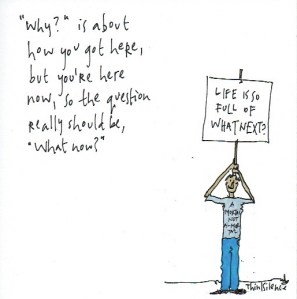 "Why?" is about
how you got here,
but you're here
now, so the question
really should be,
"What now?"
LIFE IS SO
FULL OF
WHAT NEXT?
A
NOT
ThinkSilence